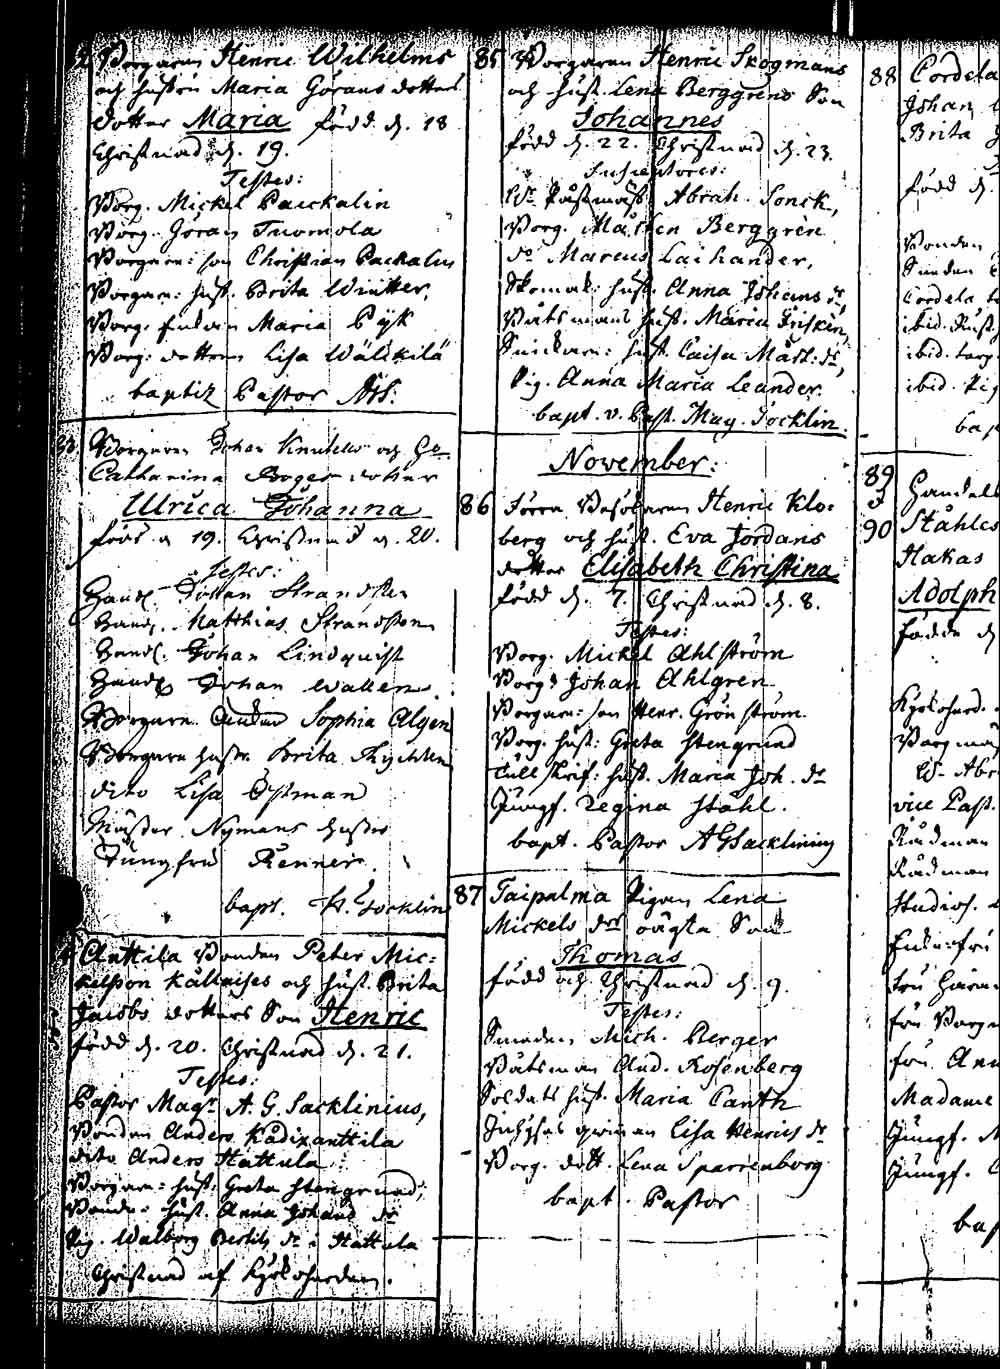 82 Borgaren Henric Wilhelms
och hustru Maria Görans dotters
dotter Maria född d. 18
Christnad d. 19.
Testes:
Borg. Mickel Paeckalin
Borg. Göran Tuomola
Borgare: son Christian Packalin
Borgare: hust. Brita Wintter,
Borg. Enkan Maria Pyk
Borg: dottren Lisa Wälikilä
baptiz Pastor
83 Borgaren Johan och
Catharina Borgers dotter
Ulrica Johanna
född d 19. Christnad d. 20.
Testes:
Handl. Johan Strandsten
Handl. Matthias Strandsten
Handl. Johan Lindquist
Handl Johan Wallen
Borgare Sophia Algen
Borgare hustr. Brita
dito Lisa Östman
Mäster Nymans hustru
Jungfru Renner
bapt. H. Jocklin
Anttila Bonden Peter Mic-
kelsson Källaises och hust. Brita
Jacobs dotters Son Henric
född d. 20. Christnad d. 21.
Testes:
Pastor Magr A. G. Sacklinius,
Bonden Anders Kådixanttila
dito Anders Hattula
Borgare: hust. Greta Stengrund,
Bonde: hust. Anna Johans dr
Pig. Walborg Bertils dr i Hattula
Christnad af Kyrkoherden.
85 Borgaren Henric Skogmans
och hust. Lena Berggrens Son
Johannes
född d. 22. Christnad d. 23.
Susceptores:
Wice Påstmäst. Abrah. Sonck,
Borg. Mårten Berggren
do Marcus Laihander,
Skomak: hust. Anna Johans dr,
Båtsmans hust. Maria Friskin,
hust. Caisa Mårt: dr,
Pig. Anna Maria Leander.
bapt. v. Past. Mag. Jocklin.
November:
86 Förra Besökaren Henric Klo-
berg och hust. Eva Jordans
dotter Elisabeth Christina
född d. 7. Christnad d. 8.
Testes:
Borg. Mickel Ahlström
Borg. Johan Ahlgren
Borgare: son Henr. Grönström.
Borg. hust: Greta Stengrund
Tull skrif: hust. Maria Joh. dr
Jungf. Regina Ståhl.
bapt. Pastor AGSacklinius
87 Taipalma Pigan Lena
Mickels drs oägta Son
Thomas
född och Christnad d. 9.
Testes:
Smeden Mich. Berger
Båtsman And. Rosenberg
Soldats hust. Maria Canth
Inhyses qwinnan Lisa Henrics dr
Borg. dott. Lena Sparrenborg
bapt. Pastor
88 Cordela
Johan
Brita
född d.
Bonden
Cordela
ibid.
ibid.
ibid. Pig
bap
89
&
90 Handels
Ståhles
Hakas
Adolph
födde d
Kyrkoherd.
Borgmäs
W. Abr
vice Past.
Rådman
Rådman
Studios.
Enkefru
fru
fru Borg
fru Ann
Madame
Jungf.
Jungf.
bap